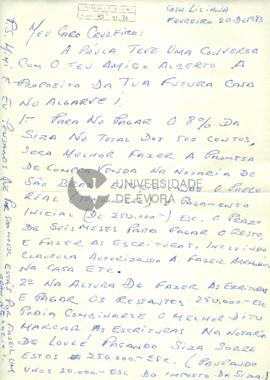 CASA LILIANA
FEVEREIRO 20 DE 1983
MEU CARO CRUZEIRO:
A PAULA TEVE UMA CONVERSA
COM O TEU AMIGO ALBERTO A
PROPOSITO DA TUA FUTURA CASA
NO ALGARVE!
1- PARA NO PAGAR O 8% DA
SIZA NO TOTAL DOS 500 CONTOS,
SERA MELHOR FAZER A PROMESA
DE COMPRA VENDA NA NOTARIA DE
SÃO BRAS
REAL PAGAMENTO
INICIAL (DE 250.000-) ESC. O PRAZO
DE SEIS MESES PARA PAGAR O RESTO,
E FAZER AS ESCRITURAS, INCLUINDO
CLAUSULA AUTORIZANDO A FAZER
NA CASA ETC.
2º NA ALTURA DE FAZER AS ESCRITURAS
E PAGAR OS RESTANTES 250.000-ESC
PODIA COMBINARSE O MELHOR DITU
MARCAR AS ESCRITURAS NA NOTARIA
DE LOULÉ PAGANDO SIZA SOBRE
ESTOS 250.000-ESC. (POUPANDO
UNOS 20.000-ESC DO IMPOSTO DA SIZA!)
UNIVERSIDADE
DE ÉVORA